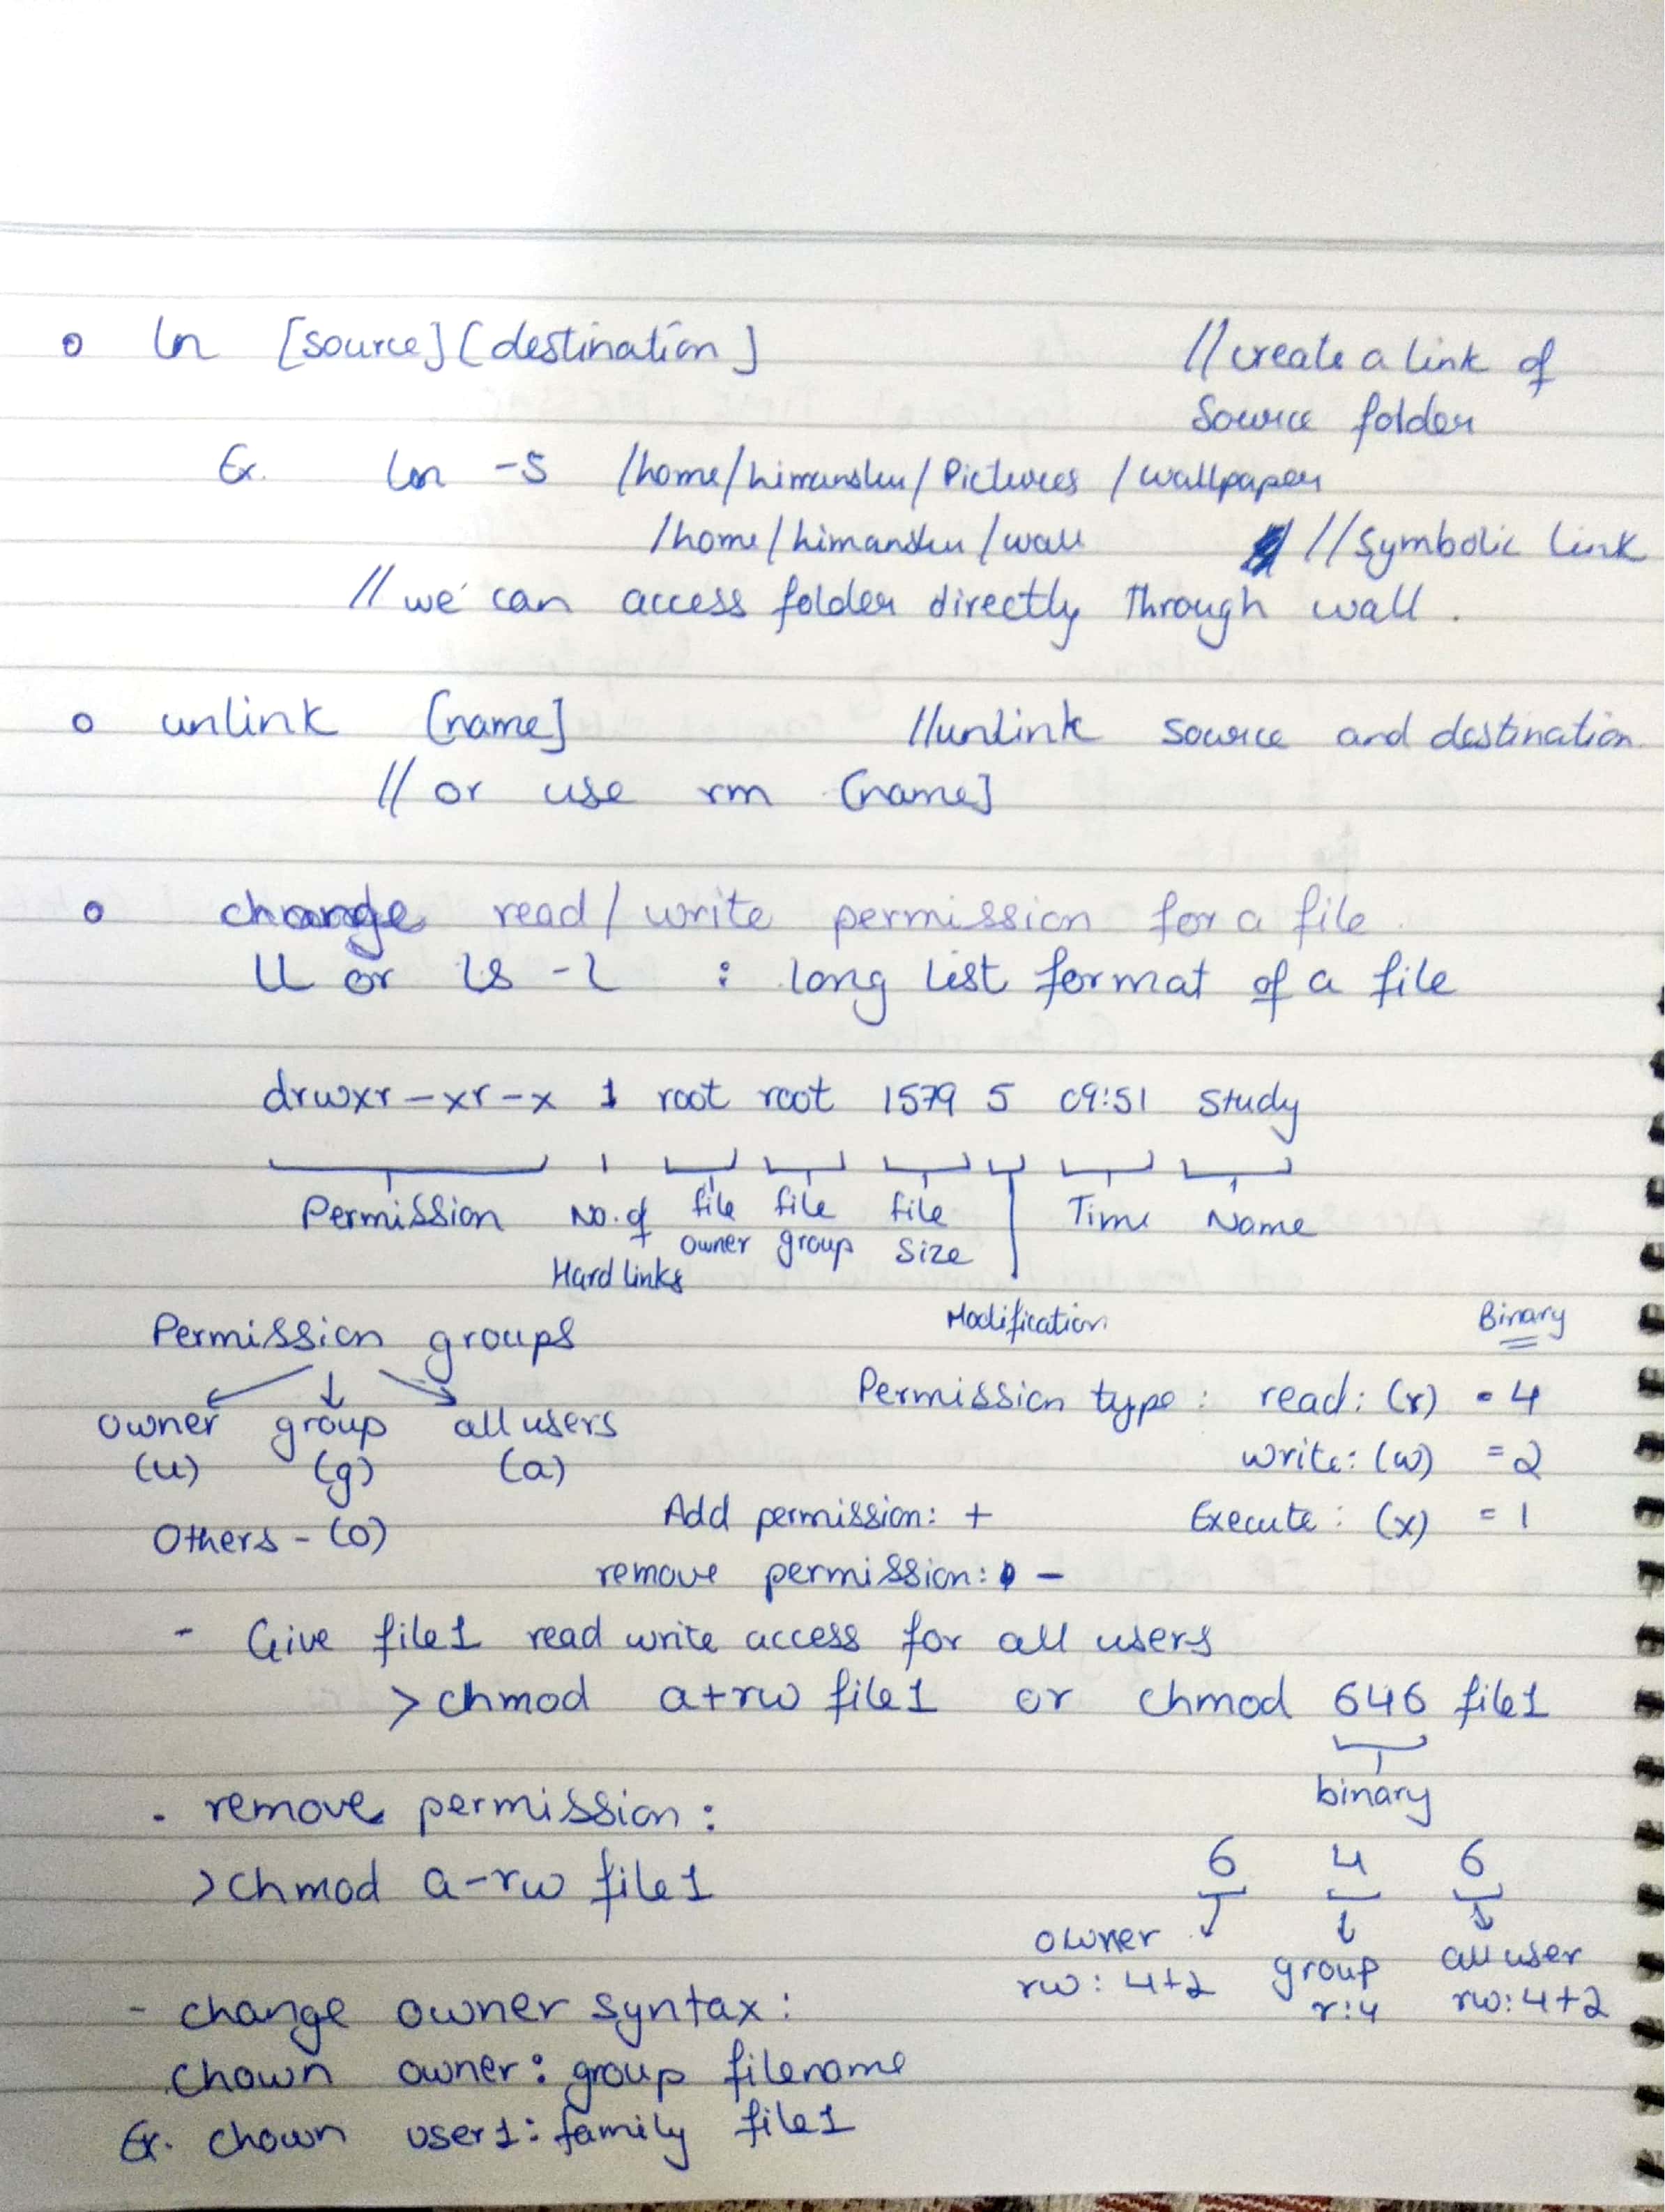 o ln [source] [destination] //create a link of
source folder
Ex. ln -s /home/himanshu/Pictures/wallpaper
/home/himanshu/wall //Symbolic link
//we can access folder directly through wall.
o unlink [name] //unlink source and destination.
//or use rm [name]
o change read/write permission for a file.
ll or ls -l : long list format of a file
drwxr-xr-x 1 root root 1579 5 09:51 Study
Permission No. of file file file Time Name
owner group size
Hard links
Modification
Permission groups Binary
Permission type: read: (r) = 4
owner group all users
(u) (g) (a) write: (w) = 2
Add permission: + Execute: (x) = 1
Others - (o)
remove permission: -
- Give file1 read write access for all users
>chmod a+rw file1 or chmod 646 file1
binary
- remove permission:
6 4 6
>chmod a-rw file1
owner group all user
rw: 4+2 r:4 rw:4+2
- change owner syntax:
chown owner:group filename
Ex. chown user1:family file1